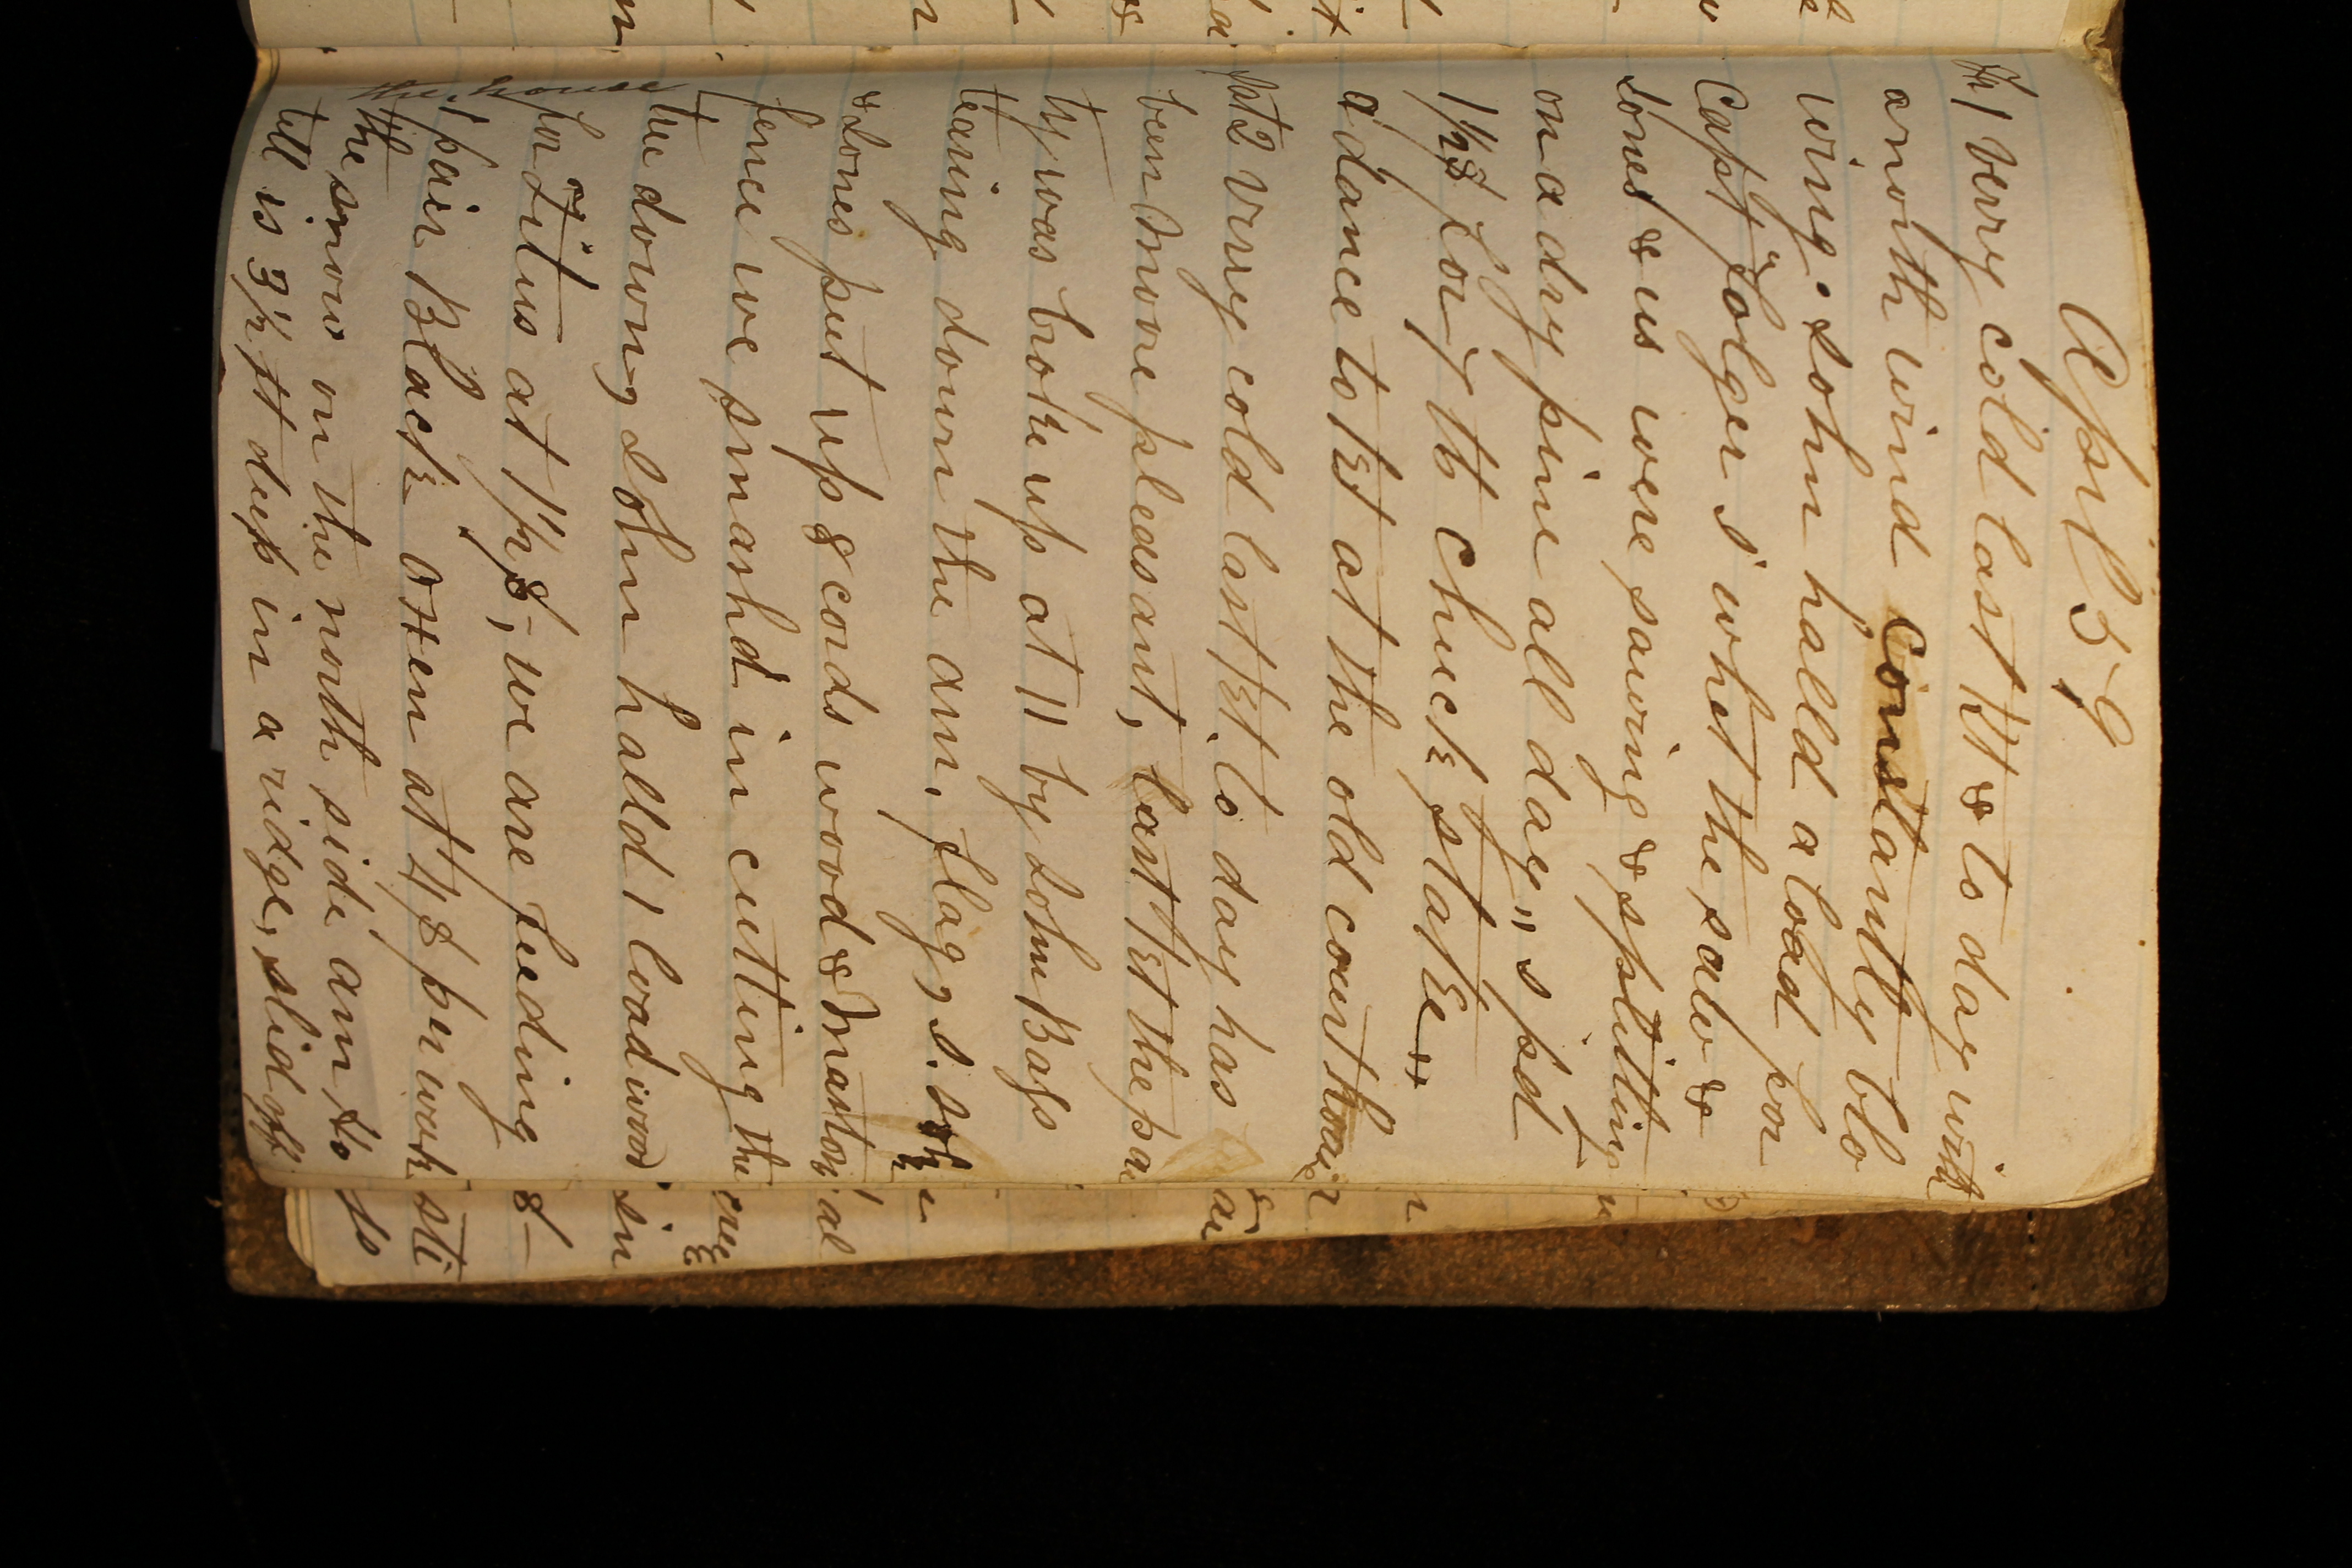 April 59
Fri 1 very cold last N't & to day with
a north wind Constantly blo
wing. John halld a load for
Capt. Folger I whet the saw &
Jones & us were sawing & splitting
on a dry pine all day,, I pd
1 1/2 $ For 7 lb Chuck steak,,
a dance to N't at the old court house
Sat 2 very cold last N't. to day has
been More pleasant, last N't the par
ty was broke up at 11 by John Bass
tearing down the am. Flagg s. John
& Jones put up 8 cords wood & Marton
fence we smashd in cutting the
tree down, John halld 1 load wood
for Titus at 1 1/2 $, we are feeding
1 pair Black Oxen at 4 $ per week
the snow on the north side am to
the house
till is 3 1/2 ft deep in a ridge, slid off